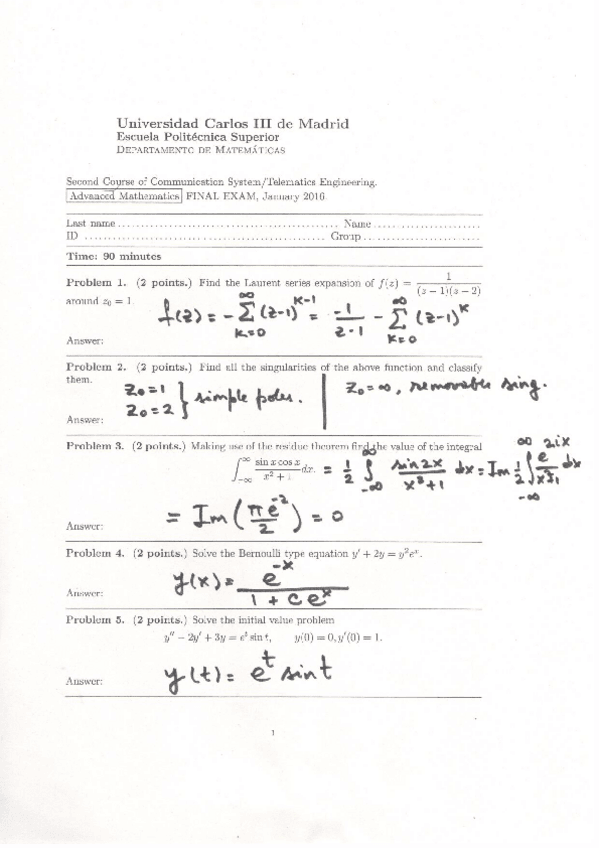 Universidad Carlos III de Madrid
Escuela Politécnica Superior
DEPARTAMENTO DE MATEMÁTICAS
Second Course of Communication System/Telematics Engineering.
Advanced Mathematics FINAL EXAM, January 2016
Last name ........................................ Name .......................
ID ........................................ Group .......................
Time: 90 minutes
Problem 1. (2 points.) Find the Laurent series expansion of f(z) = 1/((z − 1)(z − 2))
around z₀ = 1.
f(z) = − ∑_{k=0}^{∞} (z-1)^{k-1} = -1/(z-1) − ∑_{k=0}^{∞} (z-1)^k
Answer:
Problem 2. (2 points.) Find all the singularities of the above function and classify
them.
z₀=1
z₀=2 } simple poles. | z₀=∞, removable sing.
Answer:
Problem 3. (2 points.) Making use of the residue theorem find the value of the integral
∫_{−∞}^{∞} (sin x cos x)/(x² + 1) dx. = 1/2 ∫_{-∞}^{∞} (sin 2x)/(x²+1) dx = Im 1/2 ∫_{-∞}^{∞} e^{2ix}/(x²+1) dx
= Im (πe^{-2}/2) = 0
Answer:
Problem 4. (2 points.) Solve the Bernoulli type equation y′ + 2y = y²eˣ.
y(x) = e^{-x}/(1 + C eˣ)
Answer:
Problem 5. (2 points.) Solve the initial value problem
y″ − 2y′ + 3y = eᵗ sin t, y(0) = 0, y′(0) = 1.
y(t) = eᵗ sin t
Answer:
1